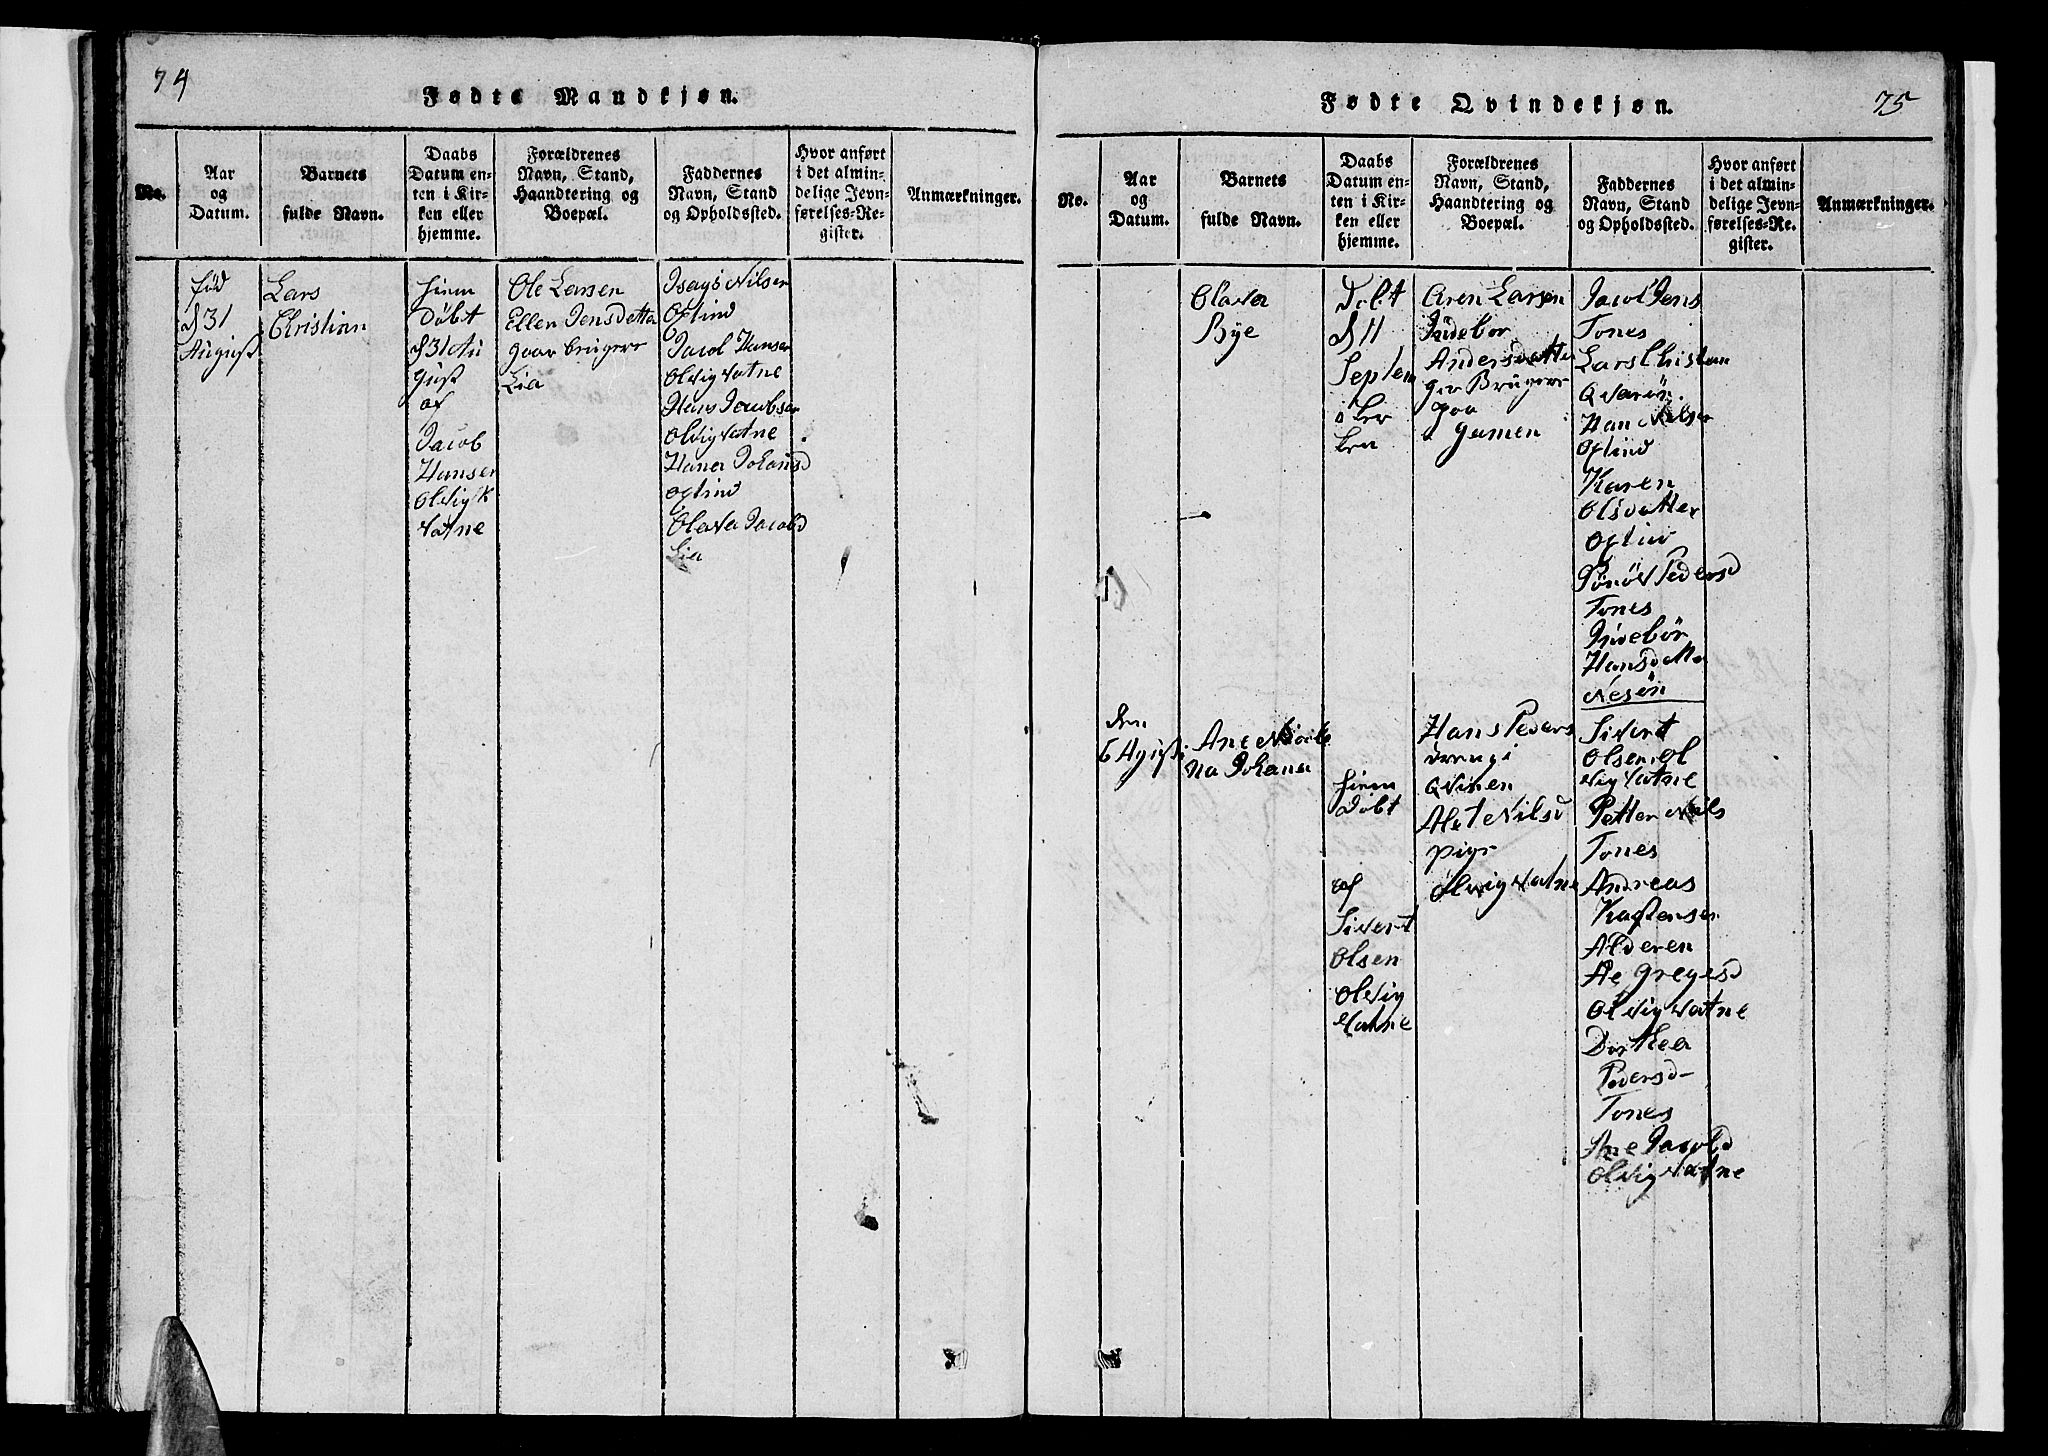 74
Fødte Mandkjøn.
No.
Aar
og
Datum.
Barnets
fulde Navn.
Daabs
Datum en-
ten i Kir-
ken eller
hjemme.
Forældrenes
Navn, Stand,
Haandtering og
Boepæl.
Faddernes
Navn, Stand
og Opholdssted.
Hvor anført
i det almin-
delige Jevn-
førelses-Re-
gister.
Anmærkninger.
fød
d 31
August
Lars
Christian
hiem
Døbt
d 31 Au
gust
af
Jacob
Hansen
Olvig
vatne
Ole Larsen
Ellen Jensdetta
gaar bruger
Lia
Isays Nilsen
Oftind
Jacob Hansen
Olvigvatne
Hans Jacobsen
Olvigvatne
Hana Johansd
oftind
Olava Jacobsd
Lia
75
Fødte Qvindekjøn.
No.
Aar
og
Datum.
Barnets
fulde Navn.
Daabs
Datum en-
ten i Kir-
ken eller
hjemme.
Forældrenes
Navn, Stand,
Haandtering og
Boepæl.
Faddernes
Navn, Stand
og Opholdssted.
Hvor anført
i det almin-
delige Jevn-
førelses-Re-
gister.
Anmærkninger.
Olava
Bye
Døbt
d 11
Septem
i ker
ken
Aren Larsen
Indebor
Andersdatter
Brugere
paa
Jacob Jens
Tones
Lars Christian
Qvarøn
Han Nilsen
Oftind
Karen
Olsdatter
Oftind
Pedersd
Tones
Indebør
Hansdatter
Nesøn
den
6 Agust
Ane
na Johana
hiem
Døbt
af
Sivert
Olsen
Olvig
vatne
Hans Peders
drengi
Qvinen
Alet Nilsd
pige
Olvigvatne
Sivert
Olsen ol
vigvatne
Petter Nils
Tones
Andreas
Kastensen
Alderen
Ae Gregesd
Olvigvatne
Dorthea
Pedersd
Tones
Ane Jacobsd
Olvigvatne